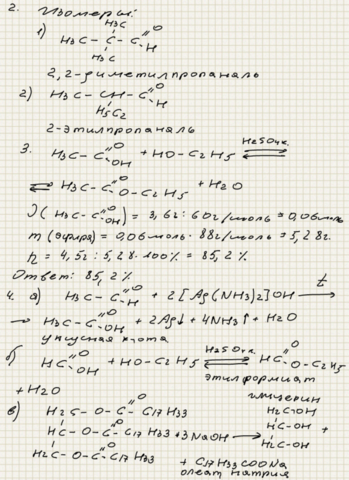 2. Изомеры:
H3C
1) H3C - C - C =O H
H3C
2,2-диметилпропаналь
2) H3C - CH - C =O H
H5C2
2-этилпропаналь
3. H3C - C =O OH + HO - C2H5 ⇌ H2SO4к.
⇌ H3C - C =O O - C2H5 + H2O
ν(H3C - C =O OH) = 3,6г : 60г/моль = 0,06моль
m(эфира) = 0,06моль · 88г/моль = 5,28г.
η = 4,5г : 5,28 · 100% = 85,2%
Ответ: 85,2%
4. а) H3C - C =O H + 2[Ag(NH3)2]OH →t
→ H3C - C =O OH + 2Ag↓ + 4NH3↑ + H2O
уксусная к-ота
б) HC =O OH + HO - C2H5 ⇌ H2SO4к. HC =O O - C2H5
этилформиат
+ H2O
глицерин
в) H2C - O - C =O C17H33 H2C-OH
HC - O - C =O C17H33 + 3NaOH → HC-OH +
H2C - O - C =O C17H33 H2C-OH
+ C17H33COONa
олеат натрия